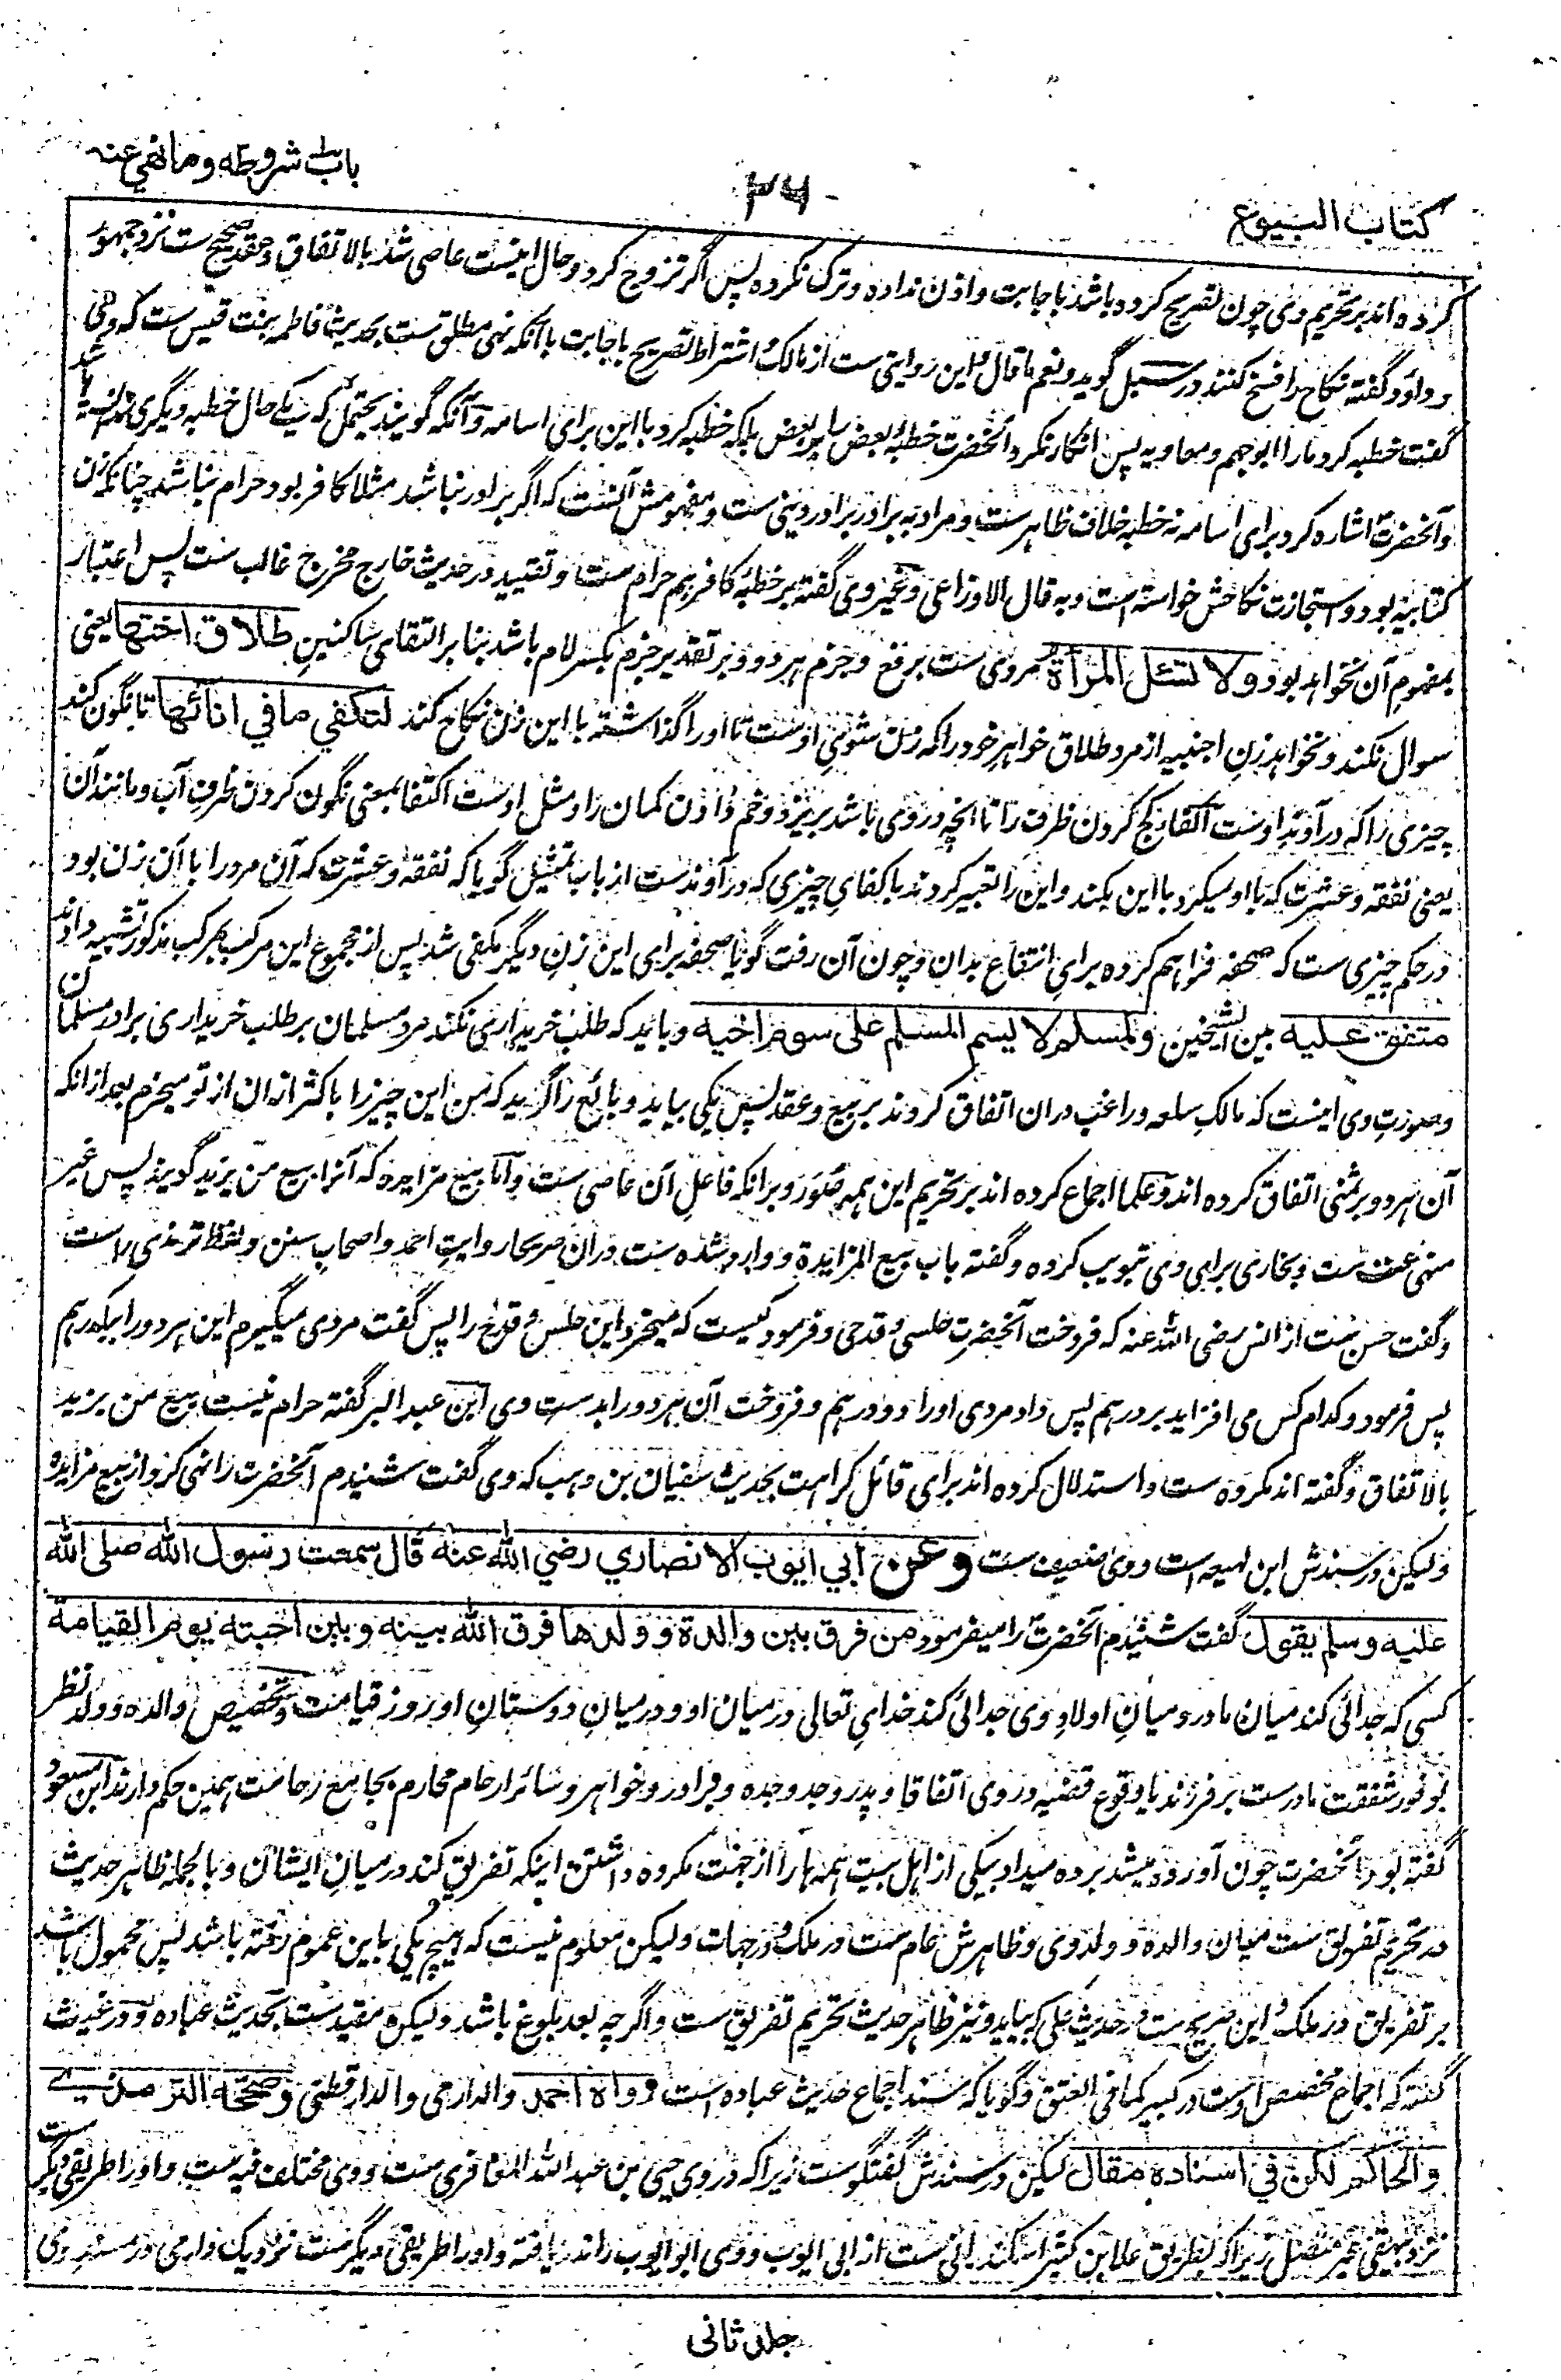 كتاب البيوع
٣٦
باب شروطه وما نهي عنه
كرده اند بر تحريم وى چون تصريح كرده باشد باجابت واذن نداده وترك نكرده پس اگر تزوج كرد وحال اينست عاصى شد بالاتفاق وعقد صحيح ست نزد جمهور
وداؤد گفته نكاح را فسخ كنند در سبل گويد ونعم ما قال واين روايتى ست از مالك واشتراط تصريح باجابت باآنكه نهى مطلق ست بحديث فاطمه بنت قيس ست كه وى
گفت خطبه كرد مارا ابوجهم ومعاويه پس انكار نكرد آنحضرت خطبهٔ بعض را بر بعض بلكه خطبه كرد با اين براى اسامه وآنكه گويند يحتمل كه يكے حال خطبهٔ ديگرى ندانسته باشد
وآنحضرت اشاره كرد براى اسامه نه خطبه خلاف ظاهرست ومراد به برادر برادر دينى ست ومفهومش آنست كه اگر برادر نباشد مثلا كافر بود حرام نباشد چنانكه زن
كتابيه بود واستجازت نكاحش خواسته است وبه قال الاوزاعى وغير وى گفته بر خطبهٔ كافر هم حرام ست وتقييد در حديث خارج مخرج غالب ست پس اعتبار
بمفهوم آن نخواهد بود ولا تسئل المرأة مروى ست برفع وجزم هر دو وبر تقدير جزم بكسر لام باشد بنا بر التقاى ساكنين طلاق اختها يعنى
سوال نكند ونخواهد زن اجنبيه از مرد طلاق خواهر خود را كه زن شوى اوست تا او را گذاشته با اين زن نكاح كند لتكفي ما في انائها تا نگون كند
چيزى را كه در آوند اوست اكفا كج كردن ظرف را تا انچه در وى باشد بريزد وخم دادن كمان را ومثل اوست اكتفا بمعنى نگون كردن ظرف آب ومانند آن
يعنى نفقه وعشرت كه با او ميكرد با اين بكند واين را تعبير كردند باكفاى چيزى كه در آوندست از باب تمثيل گويا كه نفقه وعشرت كه آن مرد را با آن زن بود
در حكم چيزى ست كه صحفه فراهم كرده براى انتفاع بدان وچون آن رفت گويا صحفه براى اين زن ديگر مكفى شد پس از مجموع اين مركب بمركب مذكور تشبيه دادند
متفق عليه بين الشيخين ولمسلم لا يسم المسلم على سوم اخيه وبايد كه طلب خريدارى نكند مرد مسلمان بر طلب خريدارى برادر مسلمان
وصورت وى اينست كه مالك سلعه وراغب دران اتفاق كردند بر بيع وعقد پس يكى بيايد وبائع را گويد كه من اين چيز را باكثر ازان از تو ميخرم بعد ازانكه
آن هر دو بر ثمنى اتفاق كرده اند وعلما اجماع كرده اند بر تحريم اين همه صور وبرانكه فاعل آن عاصى ست واما بيع مزايده كه آنرا بيع من يزيد گويند پس غير
منهى عنه ست وبخارى براى وى تبويب كرده وگفته باب بيع المزايدة ووارد شده ست دران صريحا روايت احمد واصحاب سنن ولفظ ترمذى راست
وگفت حسن ست از انس رضى الله عنه كه فروخت آنحضرت حلسى وقدحى وفرمود كيست كه ميخرد اين حلس وقدح را پس گفت مردى ميگيرم اين هر دو را بيكدرهم
پس فرمود وكدام كس مى افزايد بر درهم پس داد مردى او را دو درهم وفروخت آن هر دو را بدست وى ابن عبد البر گفته حرام نيست بيع من يزيد
بالاتفاق وگفته اند مكروه ست واستدلال كرده اند براى قائل كراهت بحديث سفيان بن وهب كه وى گفت شنيدم آنحضرت را نهى كرد از بيع مزايده
وليكن در سندش ابن لهيعه است ووى ضعيف ست وعن أبي ايوب الانصاري رضي الله عنه قال سمعت رسول الله صلى الله
عليه وسلم يقول گفت شنيدم آنحضرت را ميفرمود من فرق بين والدة وولدها فرق الله بينه وبين احبته يوم القيامة
كسى كه جدائى كند ميان مادر وميان اولاد وى جدائى كند خداى تعالى درميان او ودرميان دوستان او روز قيامت وتخصيص والده وولد نظر
بوفور شفقت مادرست بر فرزند يا وقوع قضيه در وى اتفاقا وپدر وجد وجده وبرادر وخواهر وسائر ارحام محارم بجامع رحامت همين حكم دارند ابن مسعود
گفته بود آنحضرت چون آورده ميشد برده ميداد بيكى از اهل بيت همه ها را از جهت مكروه داشتن اينكه تفريق كند درميان ايشان وبالجمله ظاهر حديث
در تحريم تفريق ست ميان والده وولد وى وظاهرش عام ست در ملك ودر جهات وليكن معلوم نيست كه هيچ يكى باين عموم رفته باشد پس محمول باشد
بر تفريق در ملك واين صريح ست در حديث على كه بيايد ونيز ظاهر حديث تحريم تفريق ست واگرچه بعد بلوغ باشد وليكن مقيدست بحديث عباده ودر غيث
گفته كه اجماع مخصص اوست در كبير كما فى العتق وگويا كه سند اجماع حديث عباده است رواه احمد والدارمى والدارقطنى وصححه الترمذي
والحاكم لكن في اسناده مقال ليكن در سندش گفتگوست زيرا كه در وى حيى بن عبد الله المعافرى ست ووى مختلف فيه ست واو را طريقى ديگرست
نزد بيهقى غير متصل زيرا كه بطريق علا بن كثير اسكندرانى ست از ابى ايوب ووى ابو ايوب را ندريافته واو را طريقى ديگرست نزديك دارمى در مسند وى
جلد ثانى